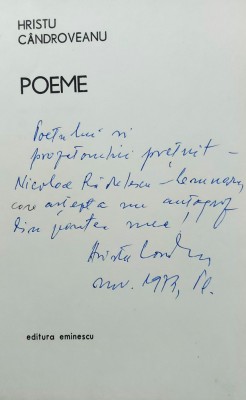 HRISTU
CÂNDROVEANU
POEME
Poetului și
prozatorului prețuit –
Nicolae Rădulescu-Lemnaru,
care așteaptă un autograf
din partea mea!
Hristu
nov. 1973,
editura eminescu